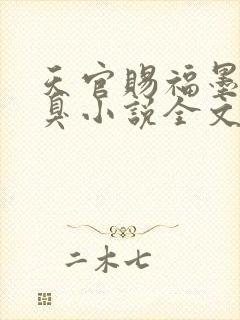 天官赐福墨
臭小说全文
二木七